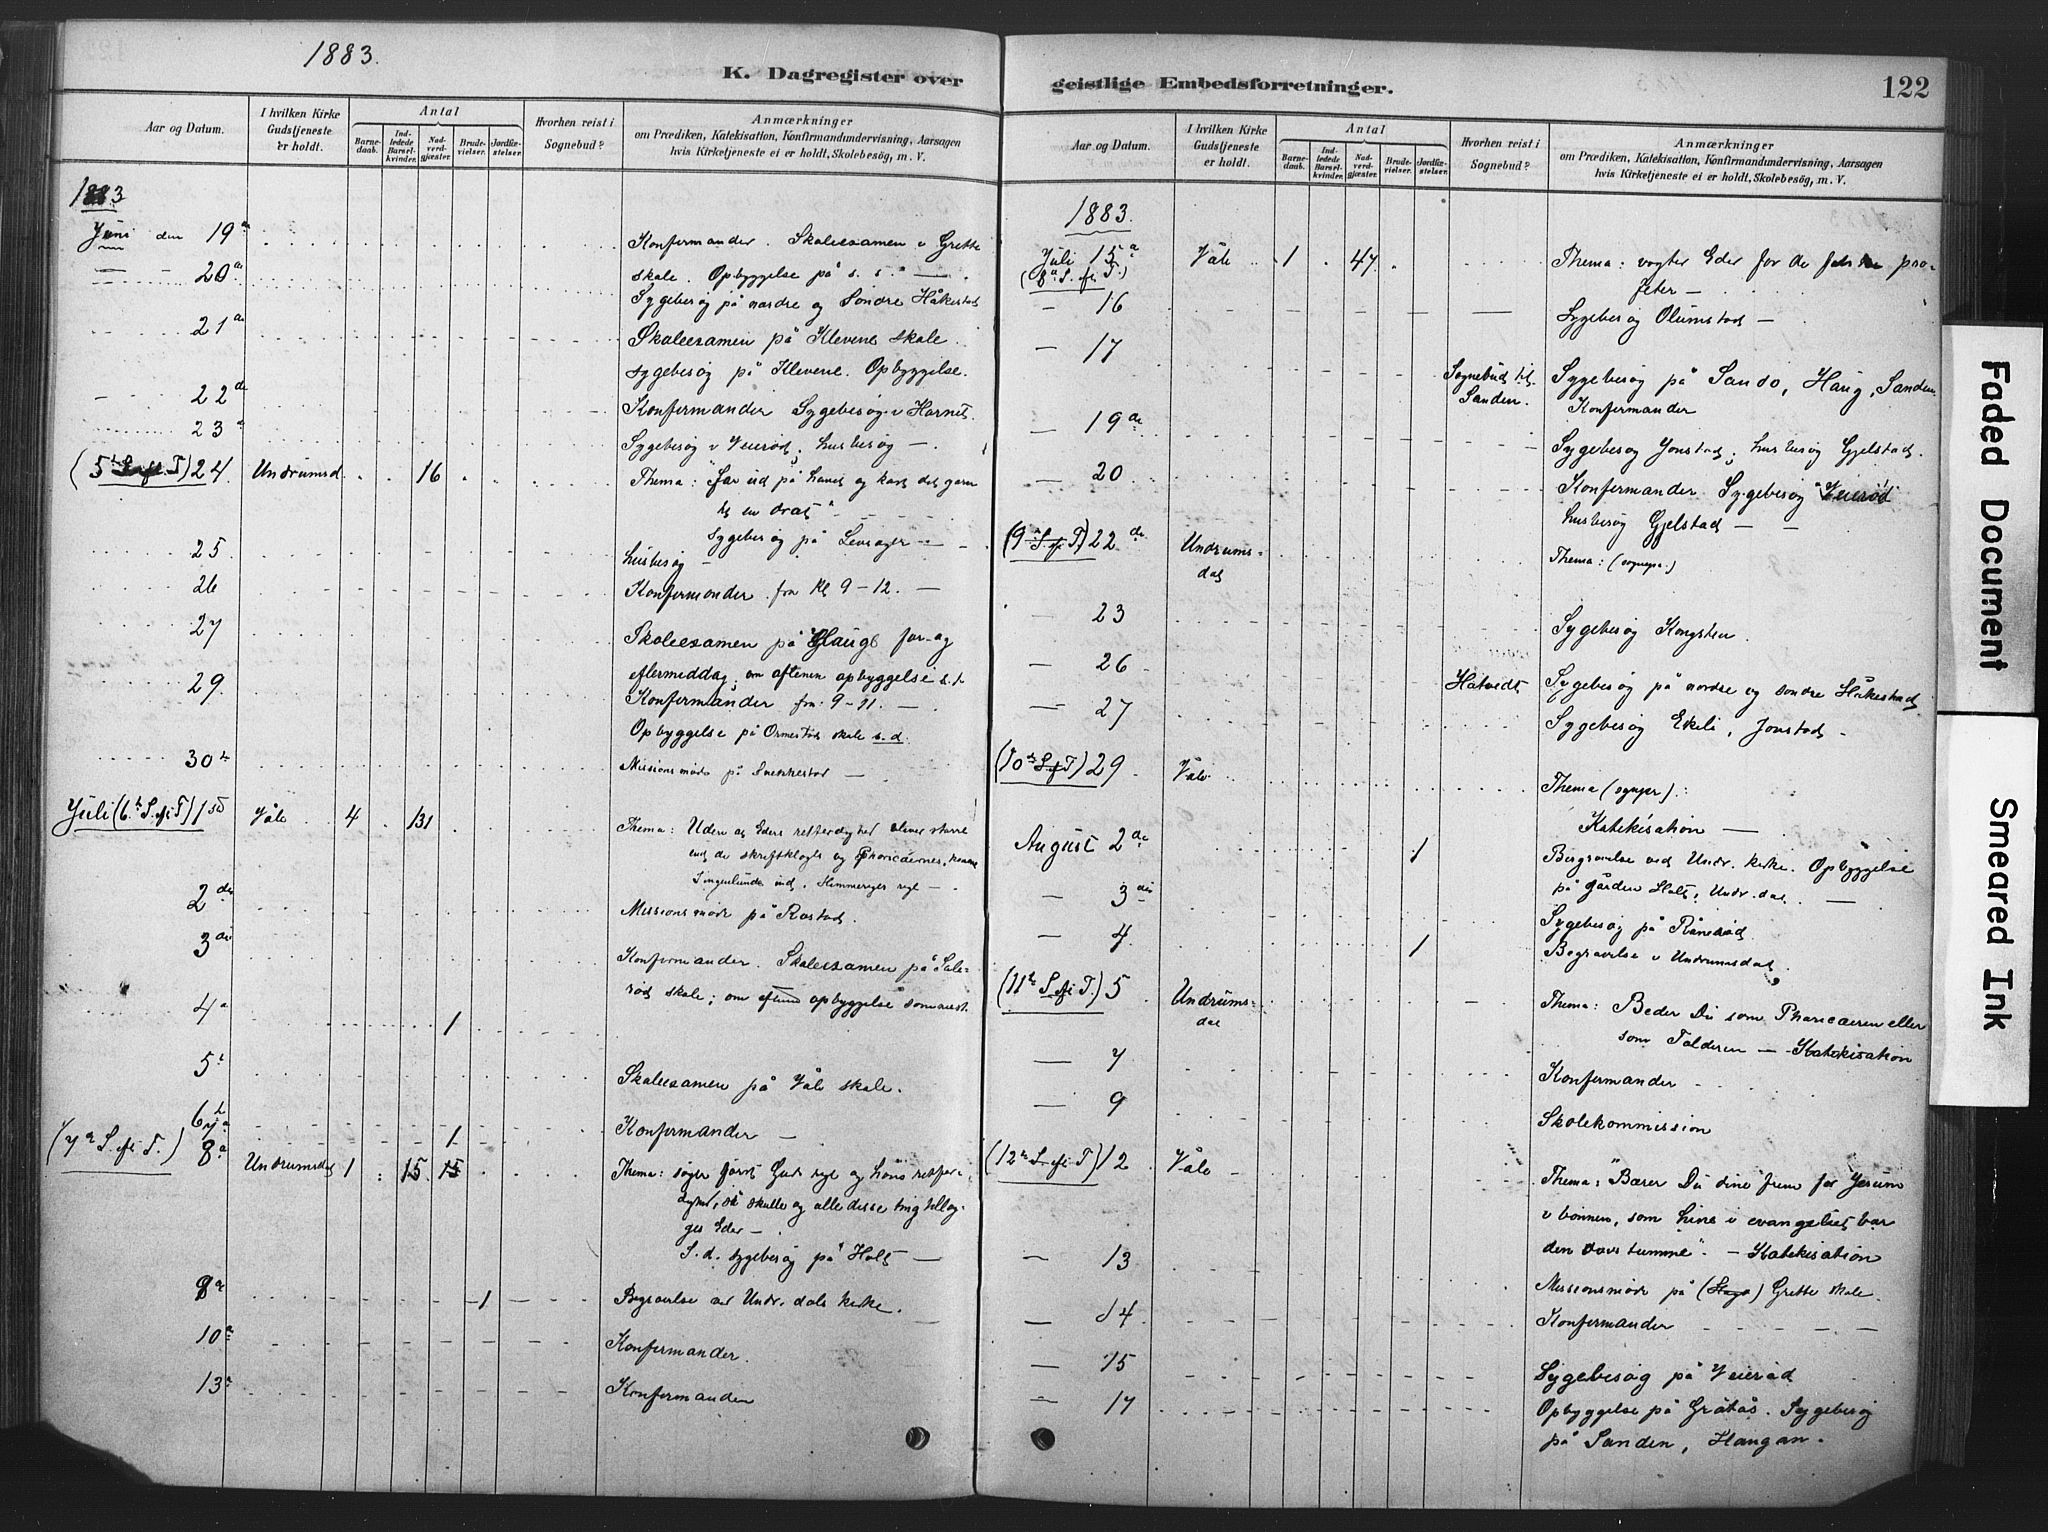 1883.
K. Dagregister over
Aar og Datum.
I hvilken Kirke Gudstjeneste er holdt.
Antal
Barnedaab.
Indledede Barselkvinder.
Nadverdgjæster.
Brudevielser.
Jordfæstelser.
Hvorhen reist i Sognebud?
Anmærkninger
om Prædiken, Katekisation, Konfirmandundervisning, Aarsagen
hvis Kirketjeneste ei er holdt, Skolebesög, m. V.
1883
Juni den 19de
Konfermander. Skoleexamen i Grette
20de
skole. Opbyggelse på s. s.
Sygebesög på nordre og Sondre Håkestad
21de
Skoleexamen på Klevene skole
sygebesög på Klevene. Opbyggelse.
22de
Konfermander Sygebesög i
23de
Sygebesög i Veieröd, husbesög
(5te S. ef. T.) 24. Undrumsd. 16
Thema: "far ud på havet og kast det garn
til en drat"
Sygebesög på
25
husbesög
26
Konfermander fra Kl 9-12.
27
Skoleexamen på Haug for- og
29
eftermiddag, om aftenen opbyggelse s. st.
Konfermander fra 9-11.
Opbyggelse på Ormestad skole s. d.
30te
Missionsmöde på
Juli (6te S. ef. T) 1ste Våle 4 131
Thema: Uden at Eders retferdighed bliver större
end de skriftkloges og Pharicæernes, komme
I ingenlunde ind i Himmeriges rige
2den
Missionsmöde på Rostad.
3die
Konfermander. Skoleexamen på Sole-
röd skole; om aftenen opbyggelse sammest.
4de 1
5te
Skoleexamen på Våle skole.
6te
Konfermander
7de 1
(7de S. ef. T.) 8de Undrumsdal 1 15 15
Thema: söger först Guds rige og hans retfær-
dighed, så skulle og alle disse ting tillæg-
ges Eder
S. d. sygebesög på Holt
9de 1
Begravelse ved Undr. dals kirke.
10de
Konfermander.
13de
Konfermander
geistlige Embedsforretninger.
122
Aar og Datum.
I hvilken Kirke Gudstjeneste er holdt.
Antal
Barnedaab.
Indledede Barselkvinder.
Nadverdgjæster.
Brudevielser.
Jordfæstelser.
Hvorhen reist i Sognebud?
Anmærkninger
om Prædiken, Katekisation, Konfirmandundervisning, Aarsagen
hvis Kirketjeneste ei er holdt, Skolebesög, m. V.
1883.
Juli 15de Våle 1 47
Thema: vogter Eder for de falske pro-
(8de S. ef. T.)
feter
16
Sygebesög Olumstad
17 Sognebud til Sanden.
Sygebesög på Sando, Haug, Sanden
Konfermander
19de
Sygebesög Jonstad, husbesög Gjelstad.
20
Konfermander Sygebesög Veieröd
husbesög Gjelstad
(9de S. ef. T) 22de Undrumsdal
Thema:
23
Sygebesög Kongsten.
26 Hatvedt
Sygebesög på nordre og sondre Håkestad
27
Sygebesög Ekeli, Jonstad
(10de S. ef. T) 29. Våle
Thema
Katekisation
August 2de 1
Begravelse ved Undr. kirke. Opbyggelse
3die
på gården Holt, Undr. dal.
4.
Sygebesög på Råneröd
1
Begravelse i Undrumsdal.
(11te S. ef. T.) 5 Undrumsdal
Thema: Beder Du som Pharicæeren eller
som Tolderen - Katekisation
7
Konfermander
9
Skolekommission
(12te S. ef. T) 12. Våle
Thema: "Bærer Du dine frem for Jesum
i bönnen, som hine i evangeliet bar
den dövstumme" - Katekisation
13
Missionsmöde på Grette skole.
14
Konfermander
15
Sygebesög på Veieröd
17
Opbyggelse på Gråtås. Sygebesög
på Sanden, Haugan.
Faded Document
Smeared Ink